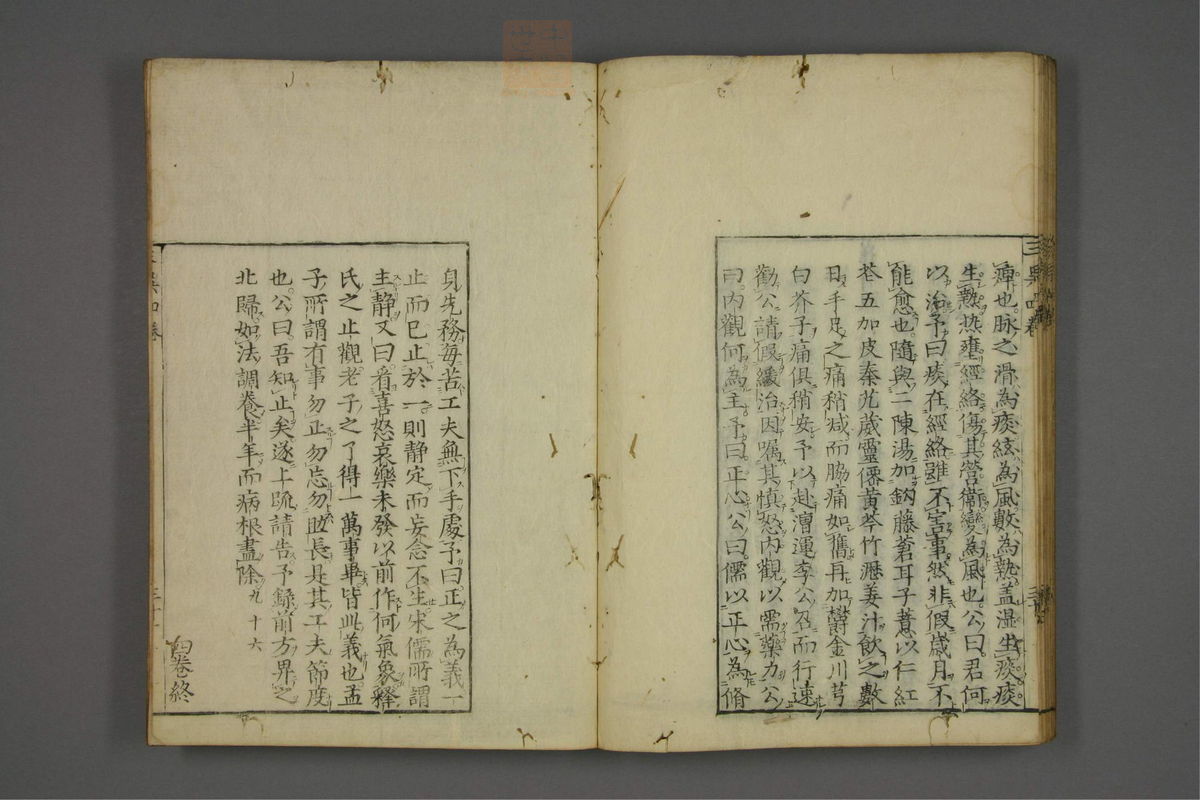 痺也脉之滑為痰絃為風數為熱盖濕生痰痰
生熱热壅經絡傷其營衛變為風也公曰君何
以治予曰痰在經絡雖不害事然非假歲月不
能愈也隨與二陳湯加鈎藤蒼耳子薏以仁紅
花五加皮秦艽葳靈僊黄芩竹瀝姜汁飲之數
日手足之痛稍减而脇痛如舊再加欝金川芎
白芥子痛俱稍安予以赴漕運李公召而行速
勸公請假緩治因嘱其慎怒内觀以需藥力公
曰内觀何為主予曰正心公曰儒以正心為脩
身先務每苦工夫無下手處予曰正之為義一
止而已止於一則静定而妄念不生宋儒所謂
主静又曰看喜怒哀樂未發以前作何氣象釋
氏之止觀老子之了得一萬事畢皆此義也孟
子所謂有事勿正勿忘勿助長是其工夫節度
也公曰吾知止矣遂上疏請告予録前方畀之
北歸如法調養半年而病根盡除九十六
四卷終